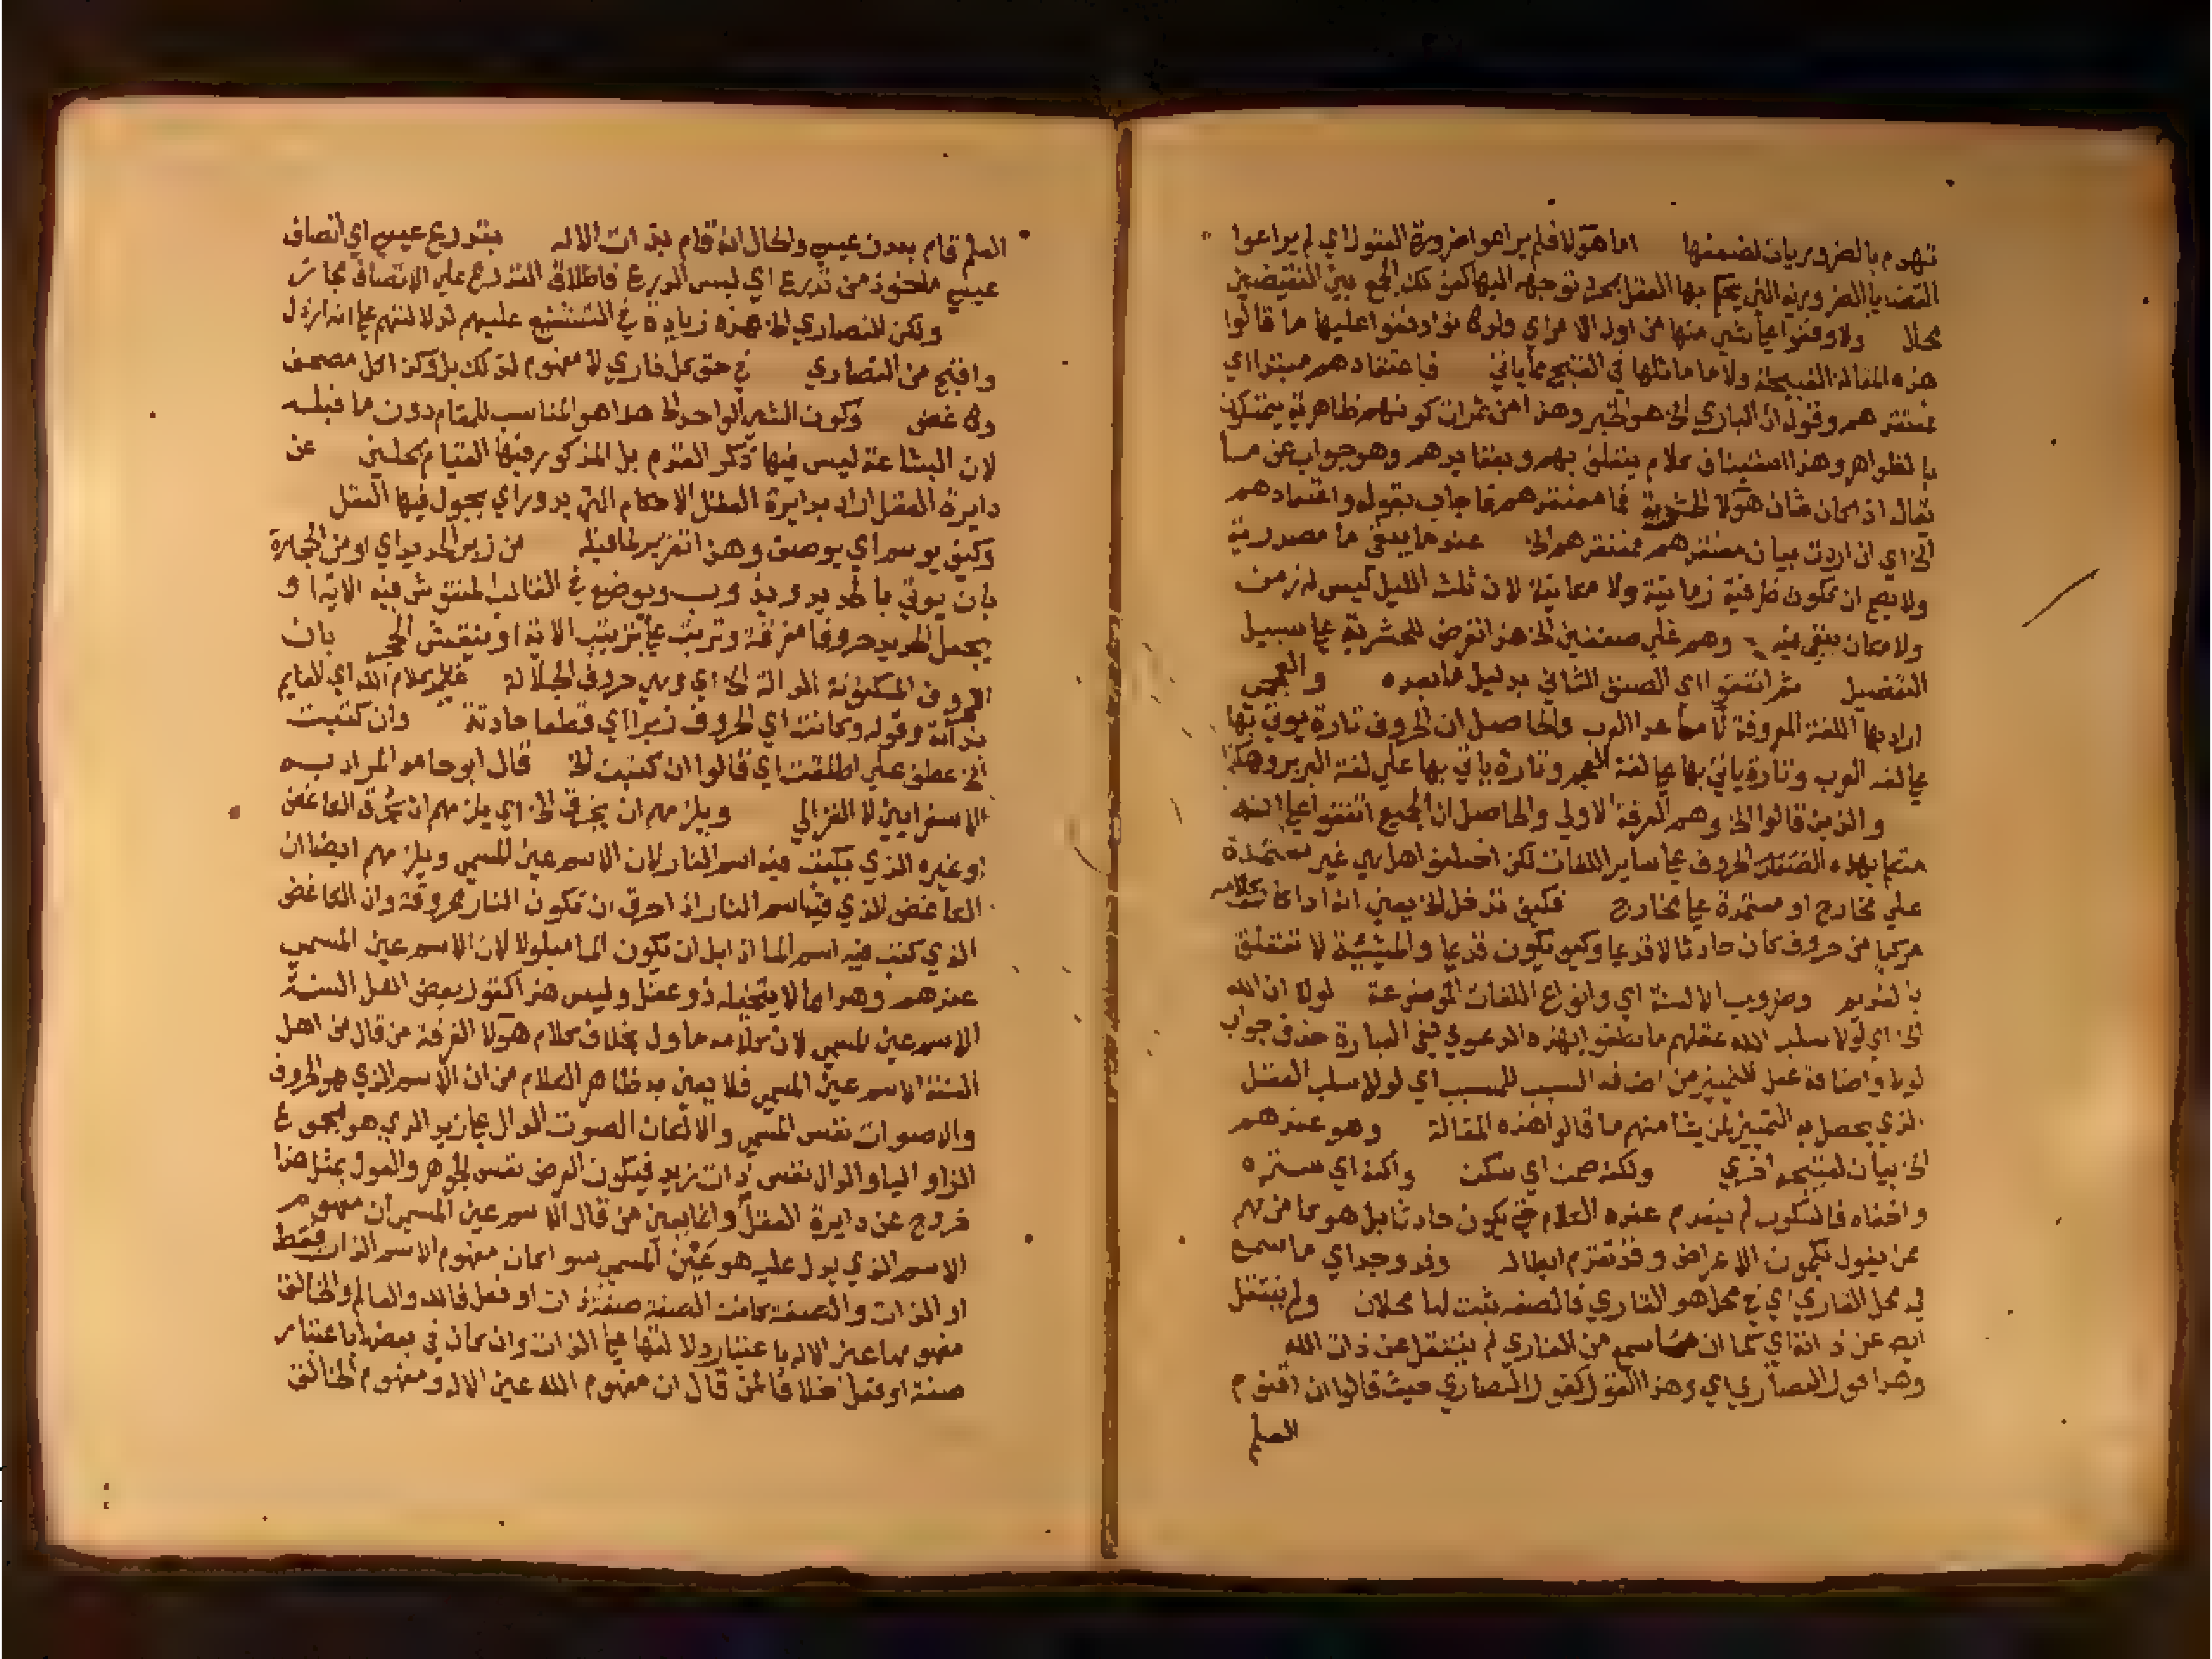 تهم بالضروريات لضعفها اما هؤلا فلم يراعوا ضرورة العقول اي لم يراعوا
القضايا الضرورية التي يحكم بها العقل بمجرد توجهه اليها ككون الجمع بين النقيضين
محالا ولا وقفوا على شي منها من اول الامر اي ولو كانوا وقفوا عليها ما قالوا
هذه المقالة القبيحة ولا ما ماثلها في القبح مما ياتي فاعتقادهم مبتدا اي
معتقدهم وقوله ان الباري الخ هو الخبر وهذا من ثمرات كونهم ظاهرية يتمسكون
بالظواهر وهذا استيناف كلام يتعلق بهم وبعقايدهم وهو جواب عن ما
يقال اذ كان شان هؤلا الحشوية فما معتقدهم فاجاب بقوله واعتقادهم
الخ اي ان اردت بيان معتقدهم فمعتقدهم الخ عندما يبقى ما مصدرية
ولا يصح ان تكون ظرفية زمانية ولا مكانية لان ثلث الليل ليس له زمن
ولا مكان يبقى فيه وهم على صنفين الخ هذا تعرض للحشوية على سبيل
التفصيل ثم اتفقوا اي الصنف الثاني بدليل ما بعده والعجمي
اراد بها اللغة المعروفة لا ما عدا العرب والحاصل ان الحروف تارة يوتي بها
على لغة العرب وتارة ياتي بها على لغة العجم وتارة ياتي بها على لغة البربر وهكذا
والذين قالوا الخ وهم الفرقة الاولي والحاصل ان الجميع اتفقوا على انه
متكلم بهذه الحروف على ساير اللغات لكن اختلفوا هل هي غير معتمدة
علي مخارج او معتمدة على مخارج فكيف تدخل الخ يعني انه اذا كان كلامه
مركبا من حروف كان حادثا لا قديما وكيف يكون قديما والمشيئة لا تتعلق
بالقديم وضروب الالسنة اي وانواع اللغات الموضوعة لولا ان الله
الخ اي لولا سلب الله عقلهم ما نطقوا بهذه الدعوي ففي العبارة حذف جواب
لولا واضافة عقل للتمييز من اضافة السبب للمسبب اي لولا سلب العقل
الذي يحصل به التمييز لمن يشا منهم ما قالوا هذه المقالة وهو عندهم
الخ بيان لقبيحة اخري ولكنه صمت اي سكت واكنه اي ستره
واخفاه فالسكوت لم ينعدم عنده الكلام حتى يكون حادثا بل هو كامن فهم
ممن يقول بكمون الاعراض وقد تقدم ابطاله وقد وجد اي ما سمع
في محل القاري اي في محل هو القاري فالصفة ثبت لها محلان ولم ينتقل
ايضا عن ذاته اي كما ان ما سمع من القاري لم ينتقل عن ذات الله
وهذا قول النصاري اي وهذا القول كقول النصاري حيث قالوا ان اقنوم
العلم
العلم قام ببدن عيسى والحال انه قام بذات الاله بتدرع عيسي اي اتصاف
عيسي ماخوذ من تدرع اي لبس الدرع فاطلاق التدرع على الاتصاف مجاز
ولكن للنصاري الخ هذه زيادة في التشنيع عليهم لدلالتهم على انه ارذل
واقبح من النصاري في حق كل قاري لا مفهوم لذلك بل وكذا كل مصحف
وكاغض وكون الشي الواحد الخ هذا هو المناسب للمقام دون ما قبله
لان البشاعة ليس فيها ذكر القدم بل المذكور فيها القيام بمحلين عن
دايرة العقل اراد بدايرة العقل الاحكام التي يدور اي يجول فيها العقل
وكيف يوسم اي يوصف وهذا تقرير لما قبله من زبر الحديد اي او من الحجارة
بان يوتي بالحديد ويذوب ويوضع في القالب المنقوش فيه الاية او
يجعل الحديد حروفا مفرقة وترتب على ترتيب الاية او ينقش الحجر بان
الحروف المكنونة الدالة الخ اي وهي حروف الجلالة على كلام الله اي القايم
بذاته وقوله وكانت اي الحروف زبرا اي قطعا حادثة وان كتبت
الخ عطف على اطلقت اي قالوا ان كتبت الخ قال ابو حامد المراد به
الاسفراييني لا الغزالي ويلزمهم ان يحترق الخ اي يلزمهم ان يحترق الكاغض
او غيره الذي يكتب فيه اسم النار لان الاسم عين المسمى ويلزمهم ايضا ان
الكاغض الذي فيه اسم النار اذا احرق ان تكون النار محروقة وان الكاغض
الذي كتب فيه اسم الما اذا بل ان يكون الما مبلولا لان الاسم عين المسمى
عندهم وهذا مما لا يتخيله ذو عقل وليس هذا كقول بعض اهل السنة
الاسم عين المسمى لان كلامه ماول بخلاف كلام هؤلا الفرقة من قال من اهل
السنة الاسم عين المسمى فلا يعني به ظاهر الكلام من ان الاسم الذي هو الحروف
والاصوات نفس المسمى والا لكان الصوت الدال على زيد الذي هو مجموع
الزاي واليا والدال نفس ذات زيد فيكون العرض نفس الجوهر والقول بمثل هذا
خروج عن دايرة العقل وانما يعني من قال الاسم عين المسمى ان مفهوم
الاسم الذي يدل عليه هو عين المسمى سوا كان مفهوم الاسم الذات فقط
او الذات والصفة كانت الصفة صفة ذات او فعل فالله والعالم والخالق
مفهومها عين الاله باعتبار دلالتها على الذات وان كان في بعضها باعتبار
صفة او فعل خلافا لمن قال ان مفهوم الله عين الاله ومفهوم الخالق